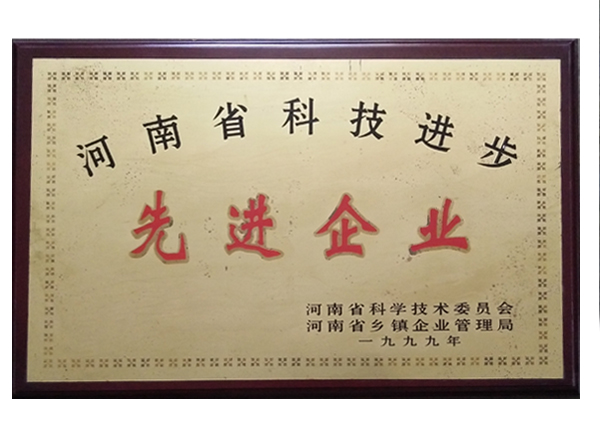 河南省科技进步
先进企业
河南省科学技术委员会
河南省乡镇企业管理局
一九九九年